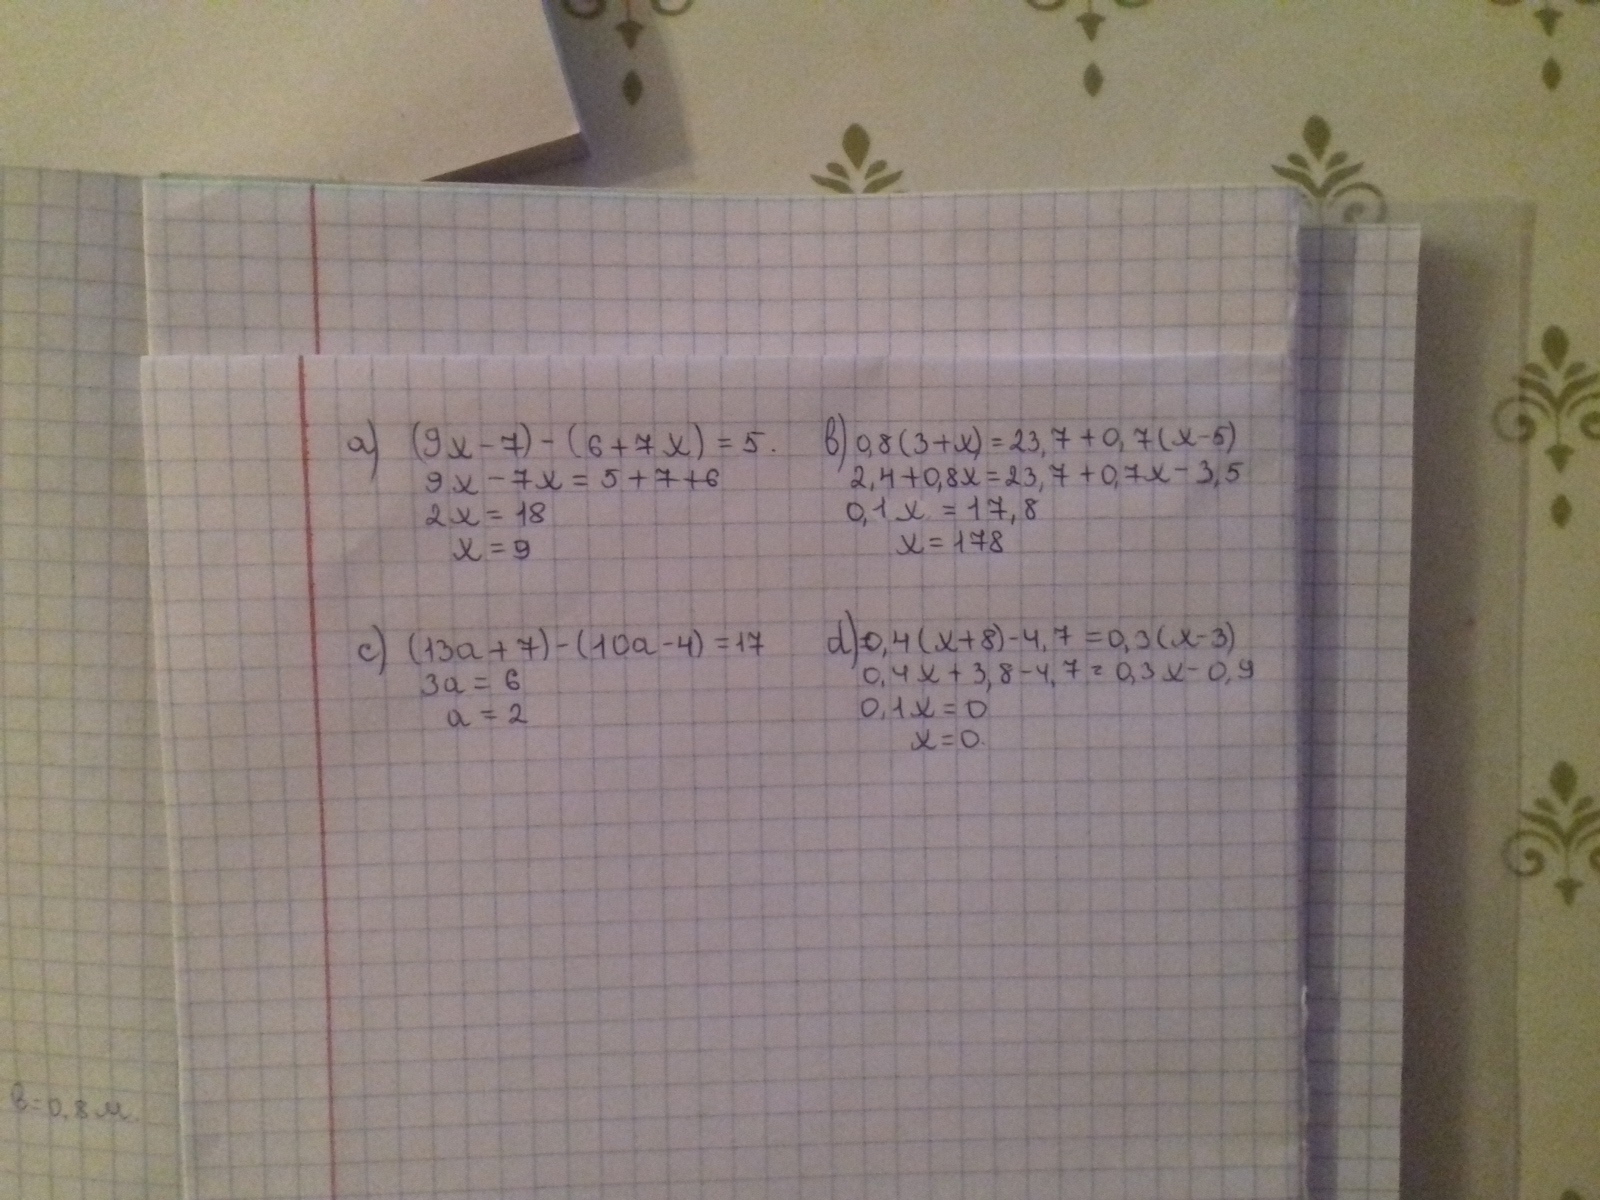 a) (9x-7)-(6+7x)=5.
9x-7x=5+7+6
2x=18
x=9
b) 0,8(3+x)=23,7+0,7(x-5)
2,4+0,8x=23,7+0,7x-3,5
0,1x=17,8
x=178
c) (13a+7)-(10a-4)=17
3a=6
a=2
d) 0,4(x+8)-4,7=0,3(x-3)
0,4x+3,8-4,7=0,3x-0,9
0,1x=0
x=0.
в=0,8м.